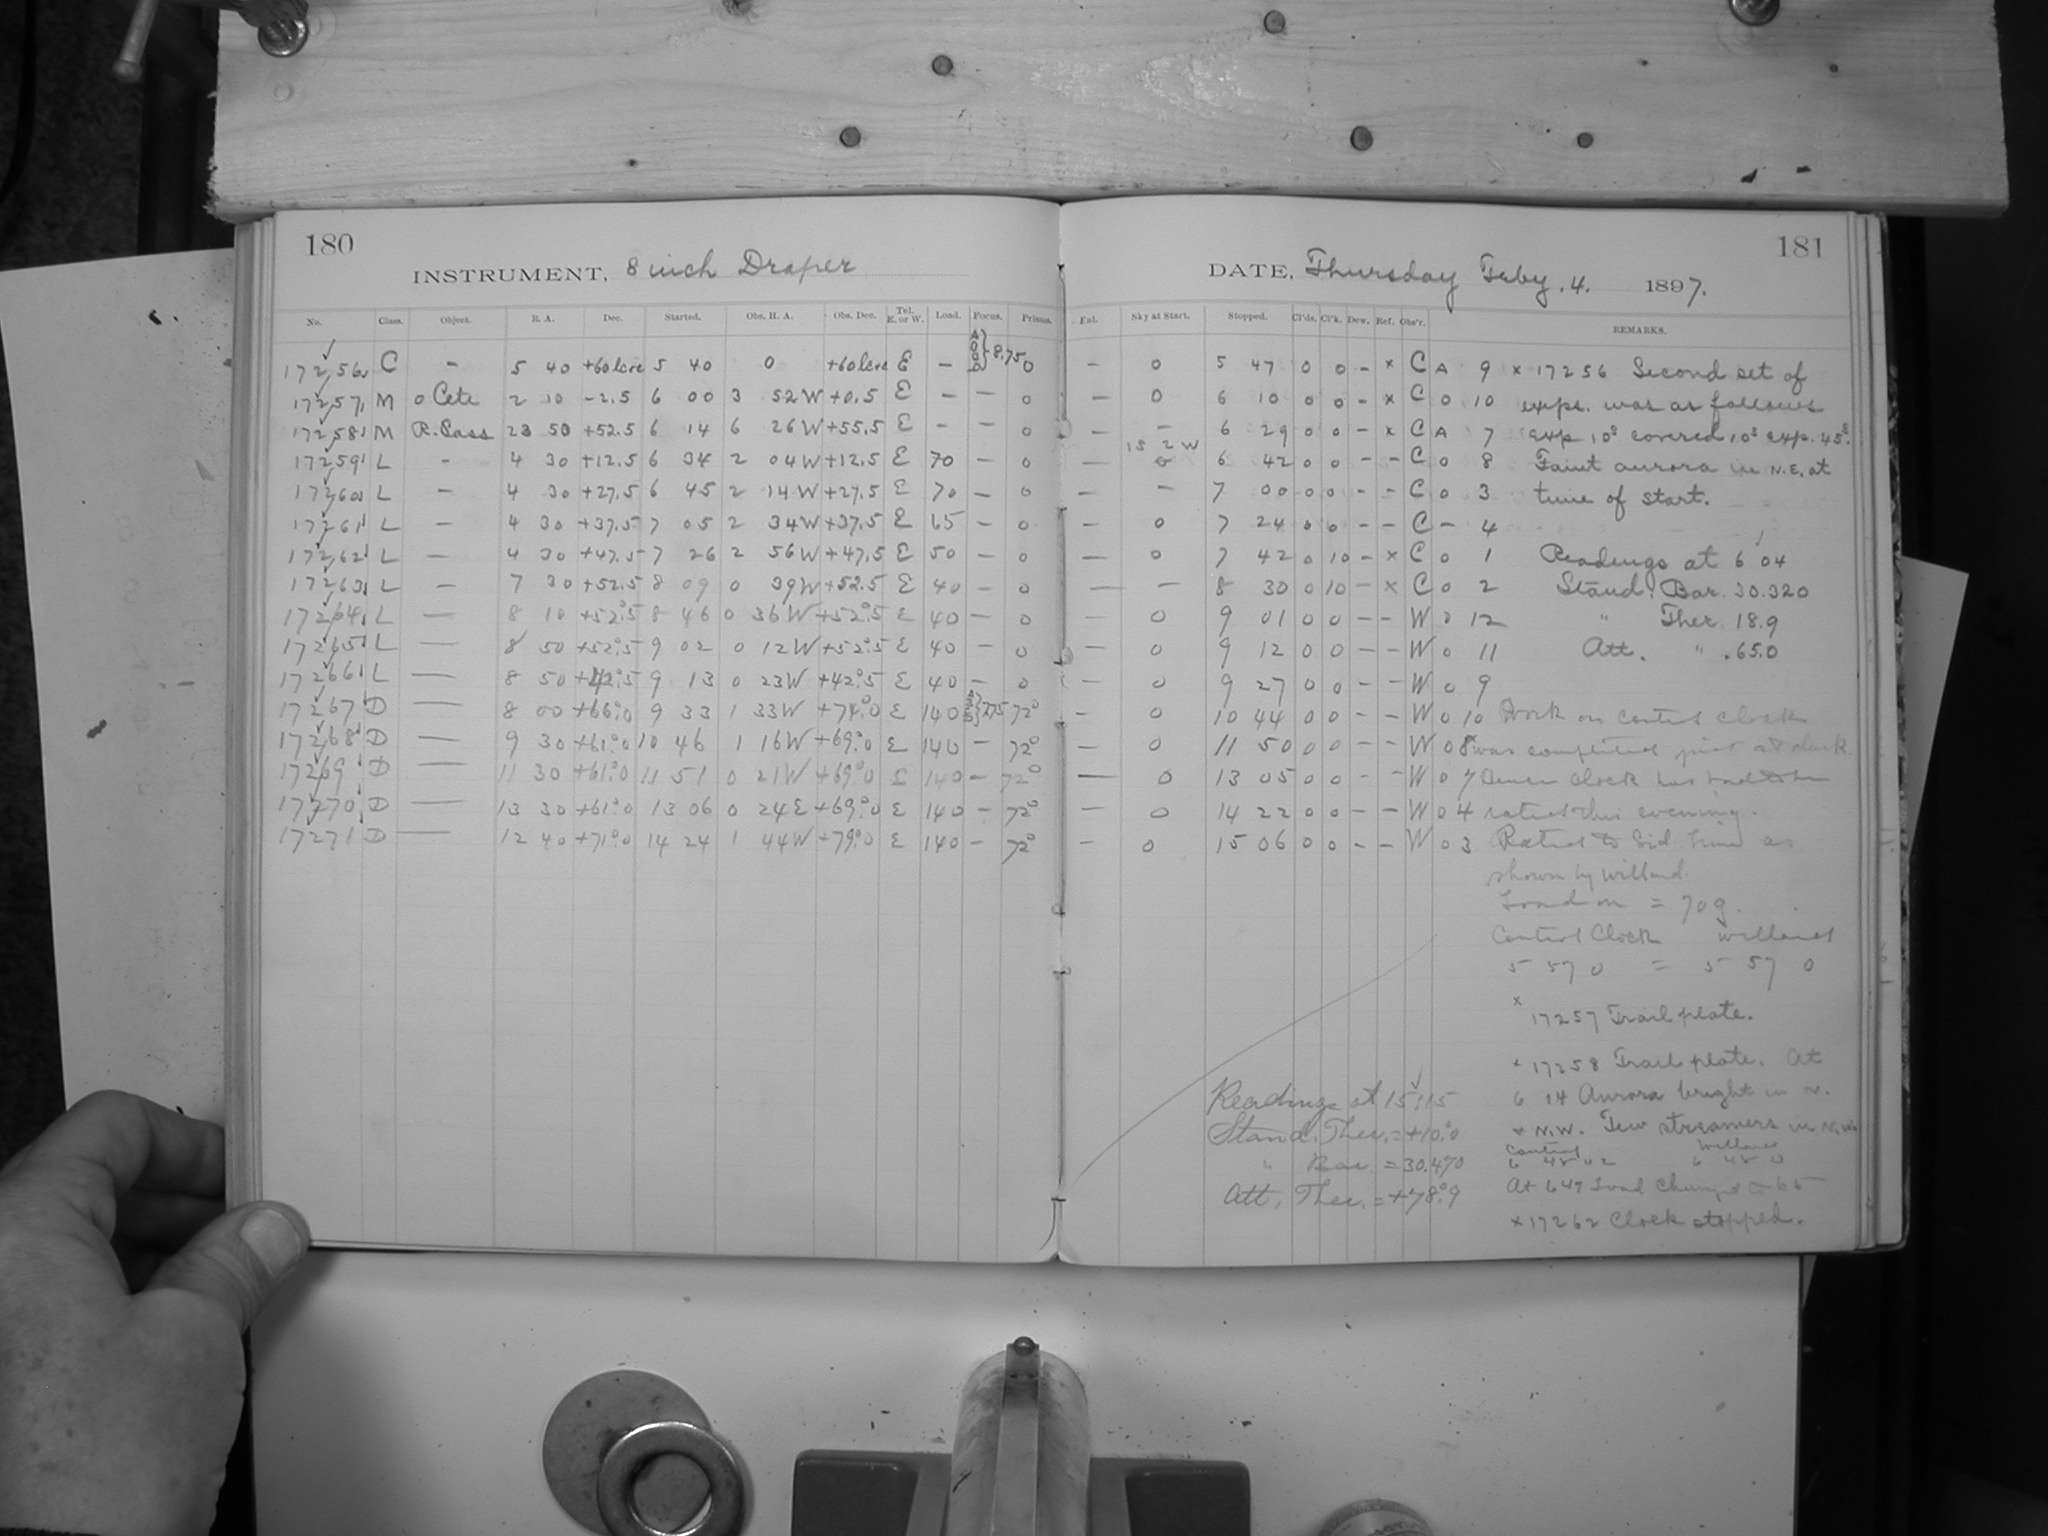 180
INSTRUMENT, 8 inch Draper
No. Class. Object. R. A. Dec. Started. Obs. H. A. Obs. Dec. Tel. E. or W. Load. Focus. Prisms.
17256 C - 5 40 +60 5 40 0 +60 E - 8.75 0
17257 M o Ceti 2 10 -2.5 6 00 3 52W +0.5 E - - 0
17258 M R. Cass 23 50 +52.5 6 14 6 26W +55.5 E - - 0
17259 L - 4 30 +12.5 6 34 2 04W +12.5 E 70 - 0
17260 L - 4 30 +27.5 6 45 2 14W +27.5 E 70 - 0
17261 L - 4 30 +37.5 7 05 2 34W +37.5 E 65 - 0
17262 L - 4 30 +47.5 7 26 2 56W +47.5 E 50 - 0
17263 L - 7 30 +52.5 8 09 0 39W +52.5 E 40 - 0
17264 L - 8 10 +52°.5 8 46 0 36W +52°.5 E 40 - 0
17265 L - 8 50 +52°.5 9 02 0 12W +52°.5 E 40 - 0
17266 L - 8 50 +42°.5 9 13 0 23W +42°.5 E 40 - 0
17267 D - 8 00 +66°.0 9 33 1 33W +74°.0 E 140 72°
17268 D - 9 30 +61°.0 10 46 1 16W +69°.0 E 140 - 72°
17269 D - 11 30 +61°.0 11 51 0 21W +69°.0 E 140 - 72°
17270 D - 13 30 +61°.0 13 06 0 24E +69°.0 E 140 - 72°
17271 D - 12 40 +71°.0 14 24 1 44W +79°.0 E 140 - 72°
181
DATE, Thursday Feby. 4. 1897.
Ful. Sky at Start. Stopped. Cl'ds. Cl'k. Dew. Ref. Obs'r. REMARKS.
- 0 5 47 0 0 - x C A 9 x 17256 Second set of
- 0 6 10 0 0 - x C 0 10 exps. was as follows
- - 6 29 0 0 - x C A 7 exp 10s covered 10s exp. 45s.
15 2 W
- 0 6 42 0 0 - - C 0 8 Faint aurora in N.E. at
- - 7 00 0 0 - - C 0 3 time of start.
- 0 7 24 0 0 - - C - 4
- 0 7 42 0 10 - x C 0 1 Readings at 6 04
- - 8 30 0 10 - x C 0 2 Stand. Bar. 30.320
- 0 9 01 0 0 - - W 0 12 " Ther. 18.9
- 0 9 12 0 0 - - W 0 11 Att. " .65.0
- 0 9 27 0 0 - - W 0 9
- 0 10 44 0 0 - - W 0 10 Work on control clock
- 0 11 50 0 0 - - W 0 8 was completed just at dark.
- 0 13 05 0 0 - - W 0 7 clock has had to be
- 0 14 22 0 0 - - W 0 4 rated this evening.
- 0 15 06 0 0 - - W 0 3 Rated to Sid. time as
shown by Willard.
Load on = 70g.
Control Clock Willard
5 57 0 = 5 57 0
x 17257 Trail plate.
x 17258 Trail plate. At
6 14 Aurora bright in N.
+ N.W. Few streamers in N.W.
Control Willard
6 45 02 6 45 0
At 6 47 Load changed to 65
x 17262 Clock stopped.
Readings at 15 15
Stand. Ther. = +10°.0
" Bar. = 30.470
Att. Ther. = +78°.9